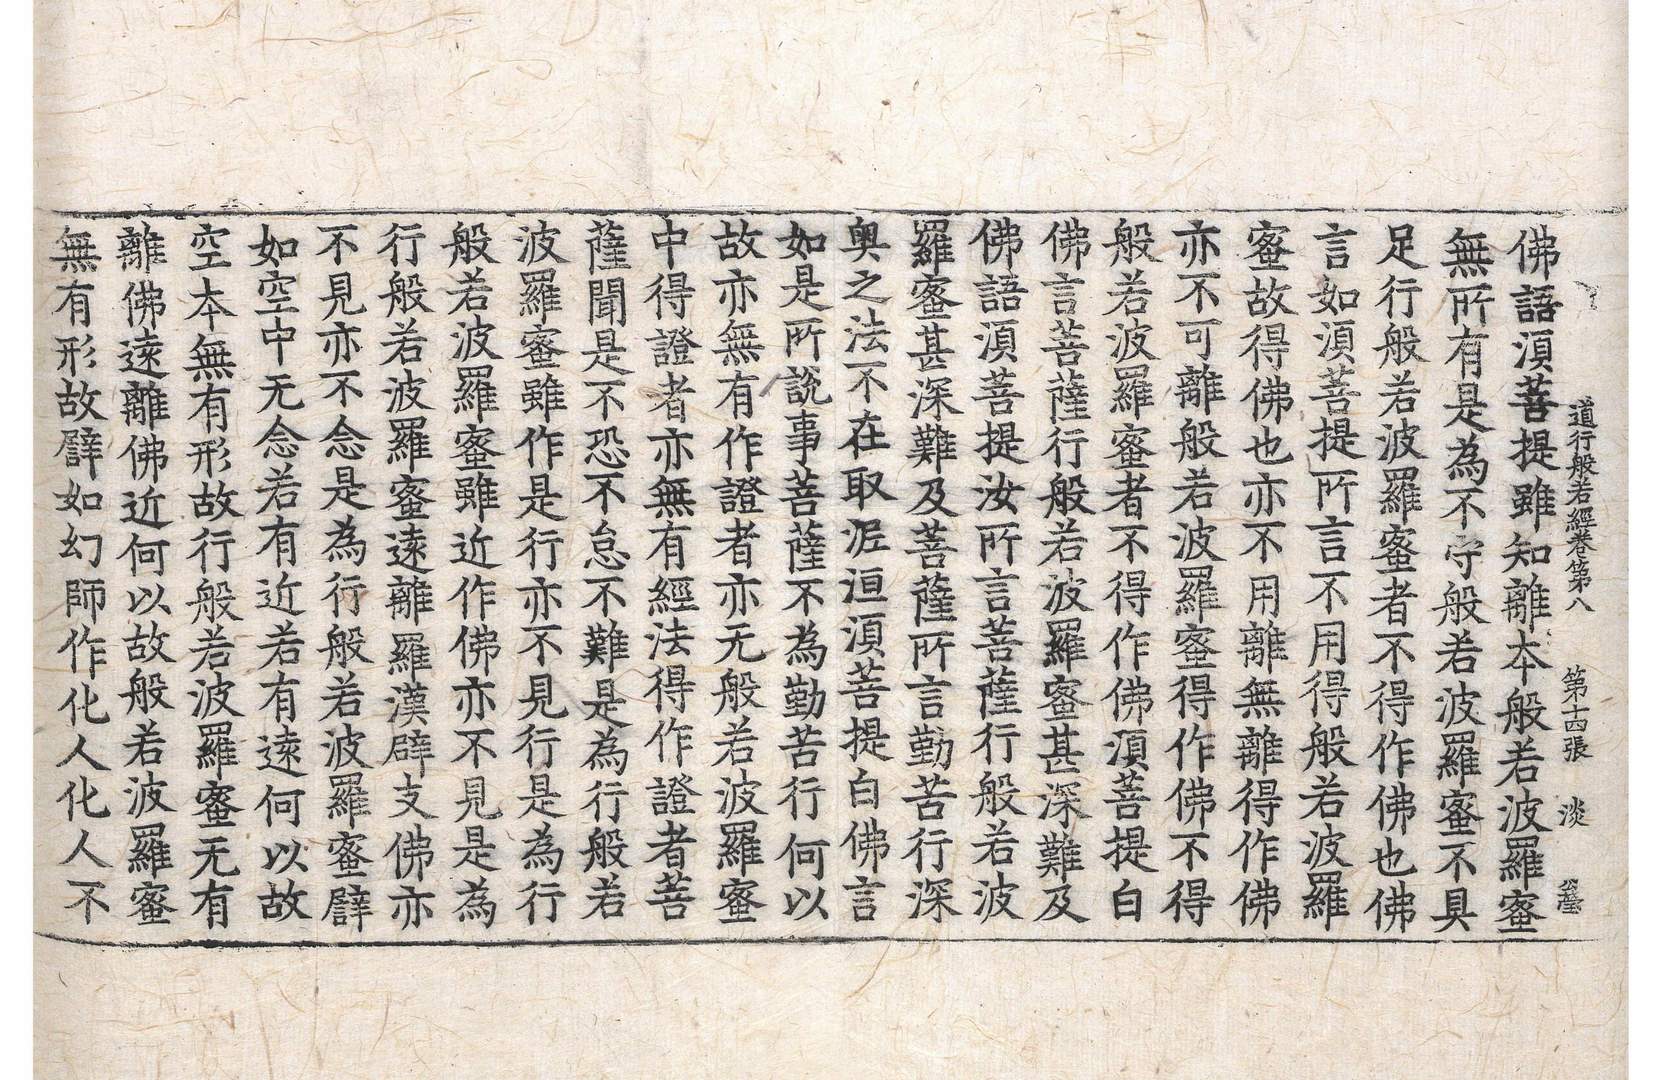 道行般若經卷第八　第十四張　淡
佛語湏菩提雖知離本般若波羅蜜
無所有是為不守般若波羅蜜不具
足行般若波羅蜜者不得作佛也佛
言如湏菩提所言不用得般若波羅
蜜故得佛也亦不用離無離得作佛
亦不可離般若波羅蜜得作佛不得
般若波羅蜜者不得作佛湏菩提白
佛言菩薩行般若波羅蜜甚深難及
佛語湏菩提汝所言菩薩行般若波
羅蜜甚深難及菩薩所言勤苦行深
奥之法不在取泥洹湏菩提白佛言
如是所說事菩薩不為勤苦行何以
故亦無有作證者亦无般若波羅蜜
中得證者亦無有經法得作證者菩
薩聞是不恐不怠不難是為行般若
波羅蜜雖作是行亦不見行是為行
般若波羅蜜雖近作佛亦不見是為
行般若波羅蜜遠離羅漢辟支佛亦
不見亦不念是為行般若波羅蜜譬
如空中无念若有近若有遠何以故
空本無有形故行般若波羅蜜无有
離佛遠離佛近何以故般若波羅蜜
無有形故譬如幻師作化人化人不